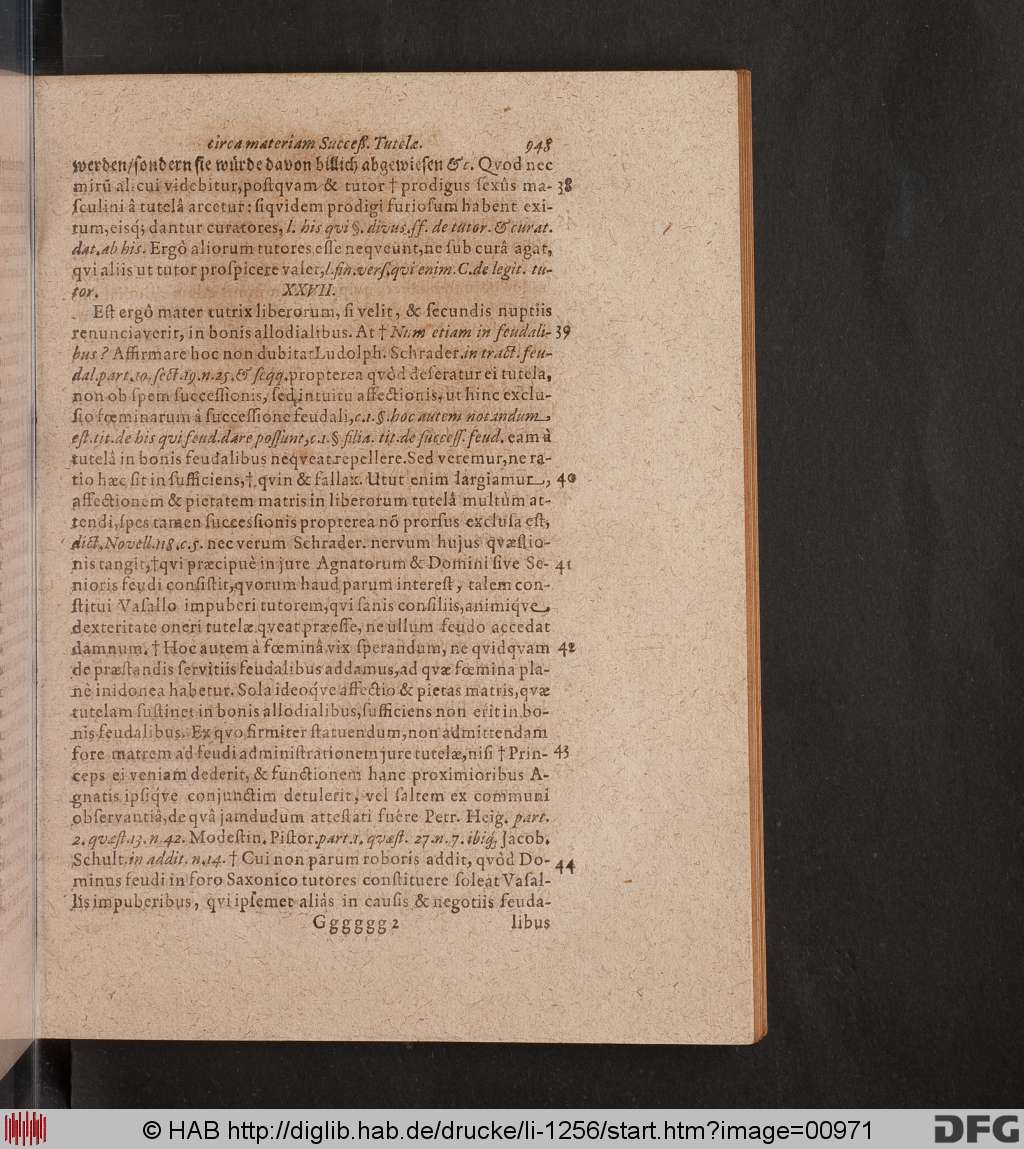 circa materiam Succeſſ. Tutelæ. 948
werden/ſondern ſie würde davon billich abgewieſen &c. Qvod nec
mirũ alicui videbitur,poſtqvam & tutor † prodigus ſexûs ma- 38
ſculini â tutelâ arcetur: ſiqvidem prodigi furioſum habent exi-
tum,eisq́; dantur curatores, l. his qvi §. divus.ff. de tutor. & curat.
dat.ab his. Ergô aliorum tutores eſſe neqveunt,ne ſub curâ agat,
qvi aliis ut tutor proſpicere valet,l.fin.verſ.qvi enim C.de legit. tu-
tor. XXVII.
Eſt ergô mater tutrix liberorum, ſi velit, & ſecundis nuptiis
renunciaverit, in bonis allodialibus. At † Num etiam in feudali- 39
bus? Affirmare hoc non dubitat Ludolph. Schrader.in tract. feu-
dal.part.10.ſect.19.n.25.& ſeqq.propterea qvôd deferatur ei tutela,
non ob ſpem ſucceſſionis, ſed intuitu affectionis, ut hinc exclu-
ſio fœminarum à ſucceſſione feudali,c.1.§.hoc autem notandum
eſt.tit.de his qvi feud.dare poſſunt,c.1.§ filia. tit.de ſucceſſ.feud. eam à
tutelâ in bonis feudalibus neqveat repellere.Sed veremur,ne ra-
tio hæc ſit inſufficiens,†.qvin & fallax. Utut enim largiamur, 40
affectionem & pietatem matris in liberorum tutelâ multùm at-
tendi,ſpes tamen ſucceſsionis propterea nõ prorſus excluſa eſt,
dict.Novell.118.c.5. nec verum Schrader. nervum hujus qvæſtio-
nis tangit,†qvi præcipuè in jure Agnatorum & Domini ſive Se- 41
nioris feudi conſiſtit,qvorum haud parum intereſt, talem con-
ſtitui Vaſallo impuberi tutorem,qvi ſanis conſiliis,animiq́ve
dexteritate oneri tutelæ qveat præeſſe, ne ullum feudo accedat
damnum. † Hoc autem à fœminâ vix ſperandum, ne qvidqvam 42
de præſtandis ſervitiis feudalibus addamus,ad qvæ fœmina pla-
nè inidonea habetur. Sola ideoq́ve affectio & pietas matris,qvæ
tutelam ſuſtinet in bonis allodialibus,ſufficiens non erit in bo-
nis feudalibus. Ex qvo firmiter ſtatuendum,non admittendam
fore matrem ad feudi adminiſtrationem jure tutelæ,niſi † Prin- 43
ceps ei veniam dederit, & functionem hanc proximioribus A-
gnatis ipſiq́ve conjunctim detulerit, vel ſaltem ex communi
obſervantiâ,de qvâ jamdudum atteſtati fuêre Petr. Heig. part.
2. qvæſt.13. n.42. Modeſtin. Piſtor.part.1. qvæſt. 27.n.7. ibiq́; Jacob.
Schult.in addit. n.14. † Cui non parum roboris addit, qvôd Do- 44
minus feudi in foro Saxonico tutores conſtituere ſoleat Vaſal-
lis impuberibus, qvi ipſemet aliàs in cauſis & negotiis feuda-
Gggggg 2 libus
© HAB http://diglib.hab.de/drucke/li-1256/start.htm?image=00971 DFG